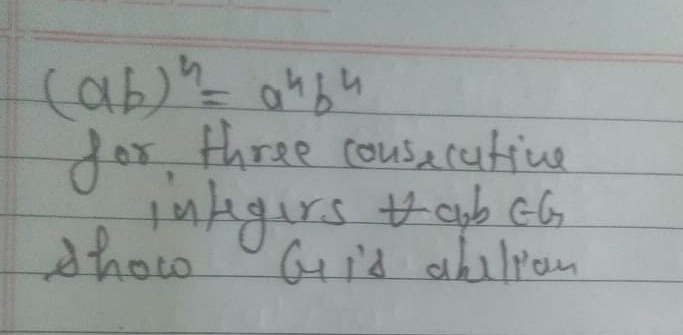 (ab)ⁿ = aⁿbⁿ
for three consecutive
integers ∀ a,b ∈ G
show G is abelian